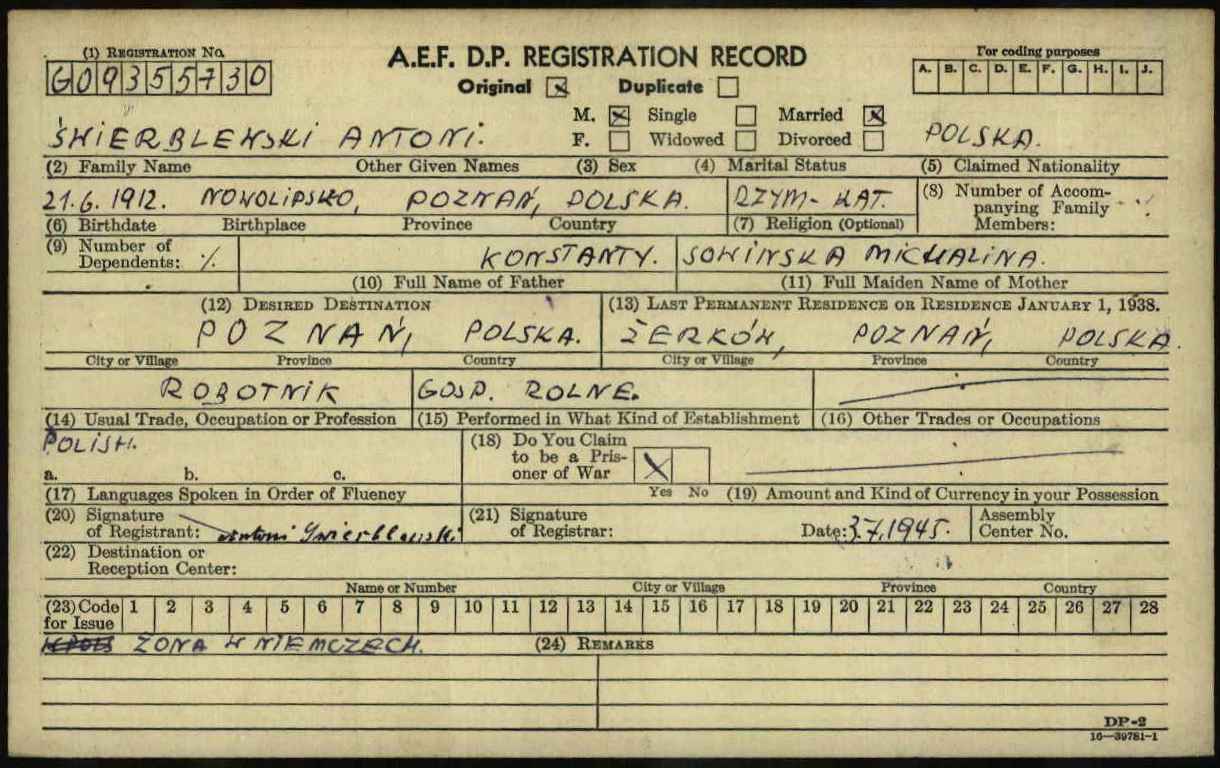 (1) REGISTRATION NO.
G09355730
A.E.F. D.P. REGISTRATION RECORD
Original ☒ Duplicate ☐
For coding purposes
A. B. C. D. E. F. G. H. I. J.
M. ☒ Single ☐ Married ☒
F. ☐ Widowed ☐ Divorced ☐
ŚWIERBLEWSKI ANTONI. POLSKA.
(2) Family Name Other Given Names (3) Sex (4) Marital Status (5) Claimed Nationality
21.6.1912. NOWOLIPSKO, POZNAŃ, POLSKA. RZYM-KAT.
(8) Number of Accom-
panying Family
Members:
(6) Birthdate Birthplace Province Country (7) Religion (Optional)
(9) Number of
Dependents: ./. KONSTANTY. SOWINSKA MICHALINA.
(10) Full Name of Father (11) Full Maiden Name of Mother
(12) DESIRED DESTINATION (13) LAST PERMANENT RESIDENCE OR RESIDENCE JANUARY 1, 1938.
POZNAŃ, POLSKA. ŻERKÓW, POZNAŃ, POLSKA.
City or Village Province Country City or Village Province Country
ROBOTNIK GOSP. ROLNE.
(14) Usual Trade, Occupation or Profession (15) Performed in What Kind of Establishment (16) Other Trades or Occupations
POLISH.
a. b. c.
(17) Languages Spoken in Order of Fluency
(18) Do You Claim
to be a Pris-
oner of War ☒ ☐
Yes No (19) Amount and Kind of Currency in your Possession
(20) Signature
of Registrant: Antoni Swierblewski
(21) Signature
of Registrar: Date: 3.7.1945.
Assembly
Center No.
(22) Destination or
Reception Center:
Name or Number City or Village Province Country
(23) Code
for Issue
1 2 3 4 5 6 7 8 9 10 11 12 13 14 15 16 17 18 19 20 21 22 23 24 25 26 27 28
ZONA W NIEMCZECH. (24) REMARKS
DP-2
16—39781-1